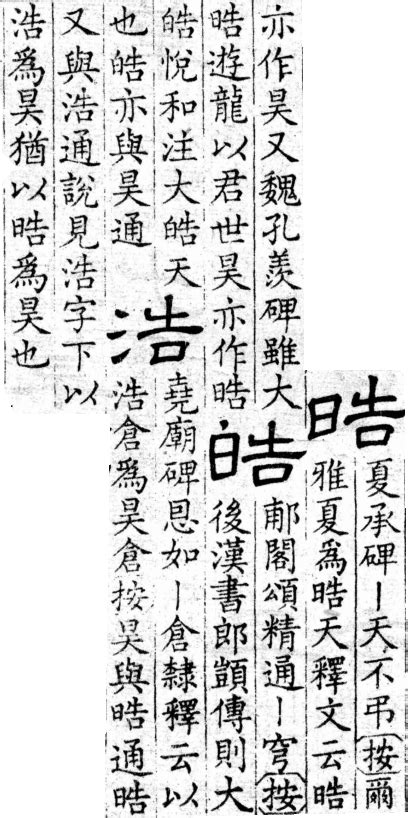 晧
夏承碑丨天不弔按爾
雅夏為晧天釋文云晧
亦作昊又魏孔羨碑雖大
晧遊龍以君世昊亦作晧
皓
郙閣頌精通丨穹按
後漢書郎顗傳則大
皓悅和注大皓天
也皓亦與昊通
浩
堯廟碑恩如丨倉隸釋云以
浩倉為昊倉按昊與晧通晧
又與浩通說見浩字下以
浩為昊猶以晧為昊也